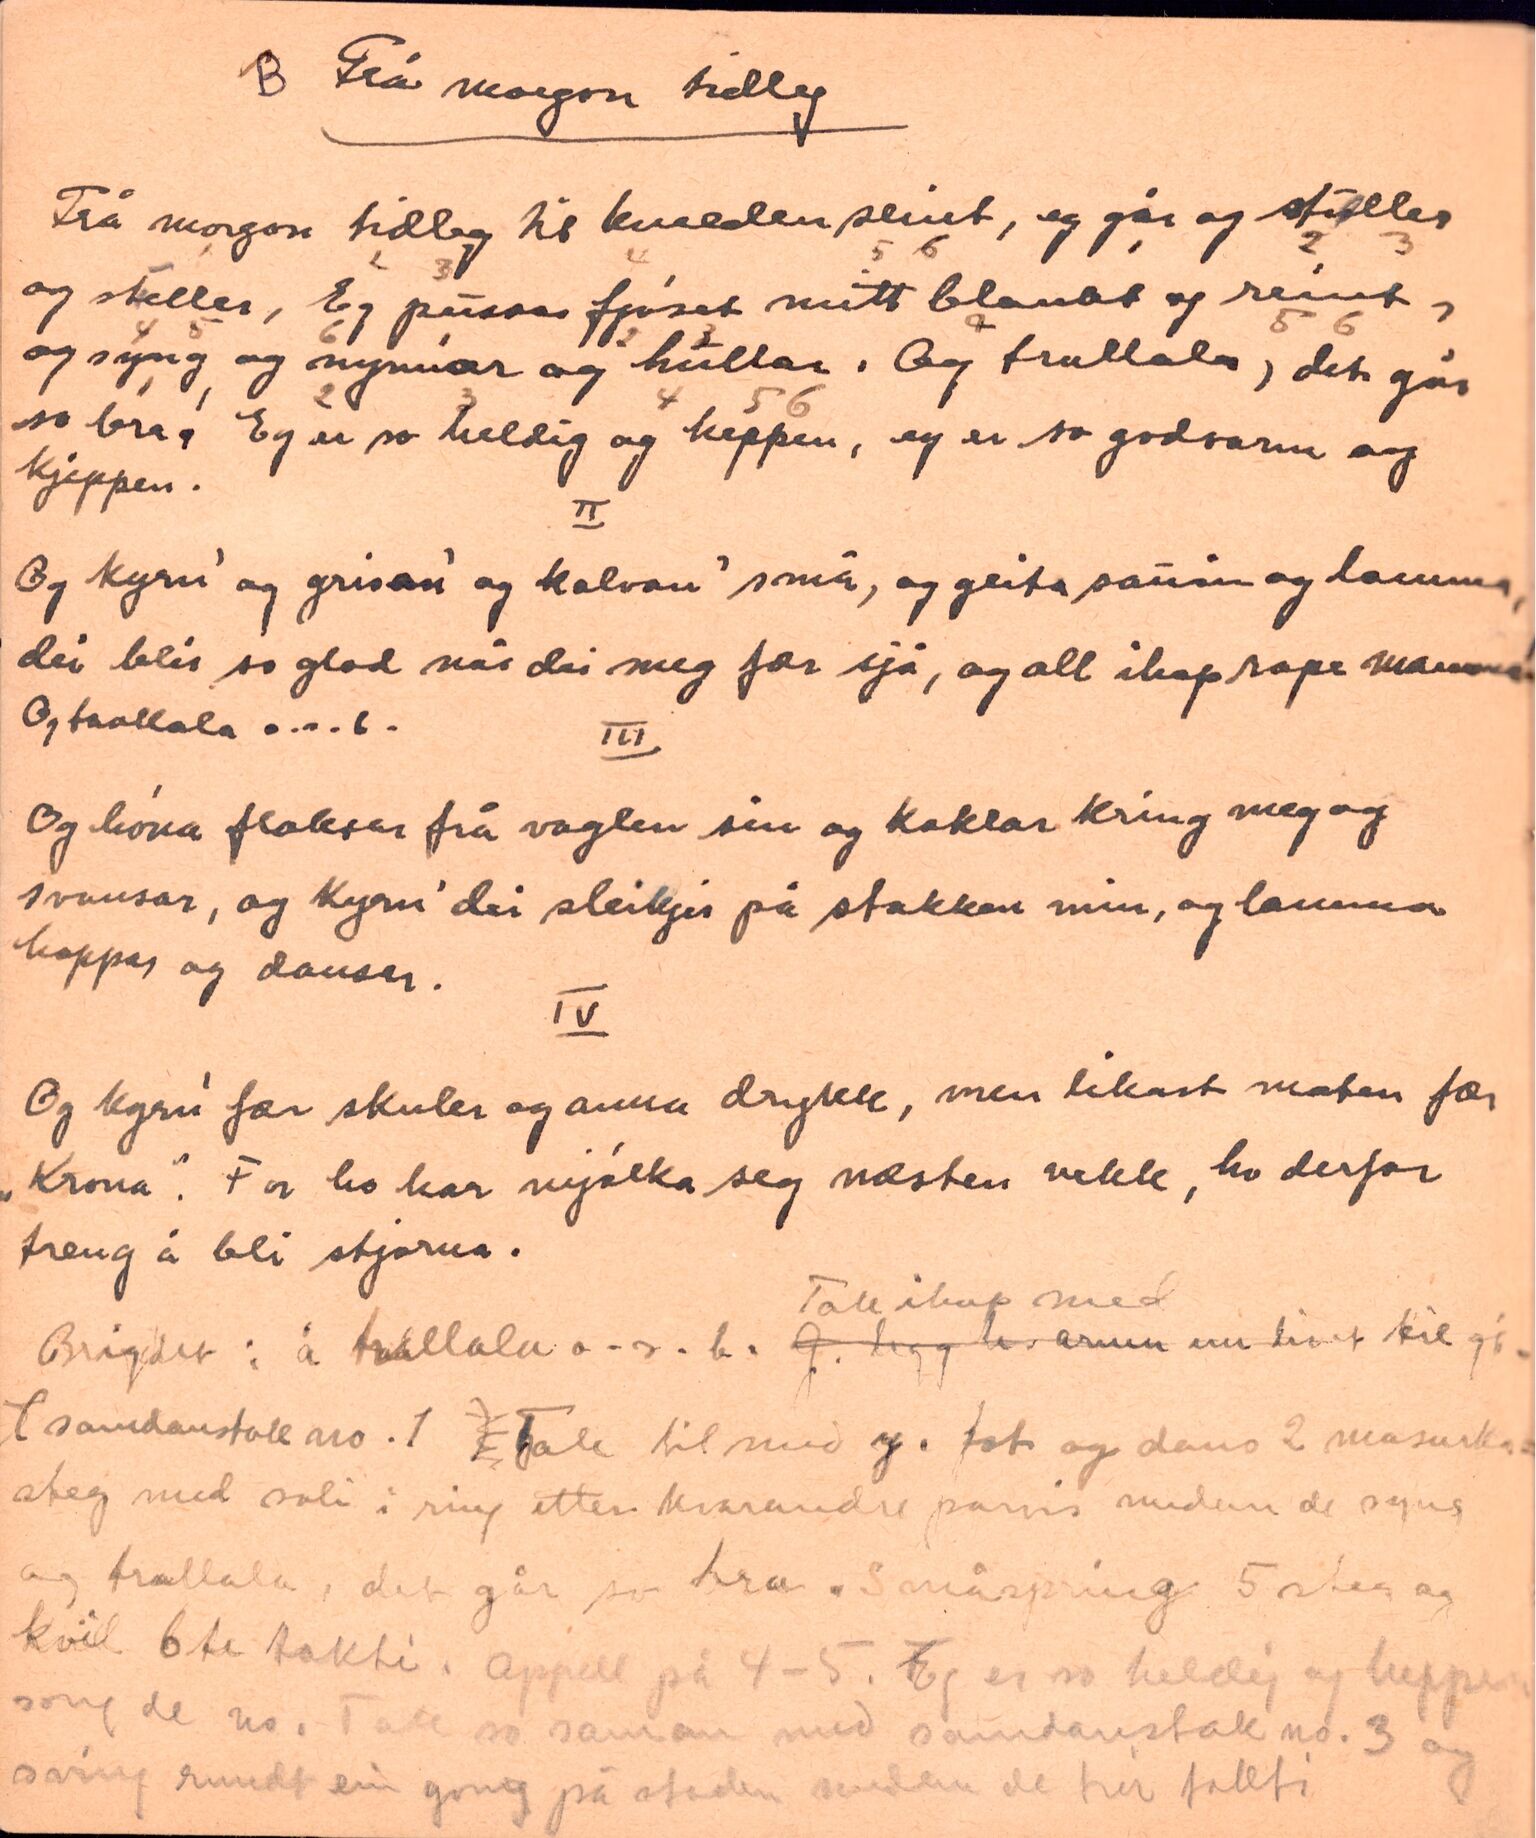 B Frå morgon tidleg
Frå morgon tidleg til kvelden seint, eg går og stuller
5 6 2 3
2 3 4
og steller, Eg pussar fjøset mitt blankt og reint,
4 5 6 2 3 4 5 6
og syng og nynnar og hullar. Og trullala, det går
2 3 4 5 6
so bra! Eg er so heldig og heppen, eg er so godvarm og
kjeppen.
II
Og kyrn' og grisan' og kalvan' små, og geita sauin og lamma,
dei blir so glad når dei meg fær sjå, og all ihop rope mamma
Og trallala o.s.b.
III
Og höna flaksar frå vaglen sin og kaklar kring meg og
svansar, og kyrn' dei sleikjer på stakken min, og lamma
hoppar og dansar.
IV
Og kyrn' fær skuler og anna drykk, men likast maten fær
"Krona". For ho har mjólka seg næsten vekk, ho derfor
treng å bli stjorna.
Tak ihop med
Brigdet: å trallala o.s.b. G. legg h. armen um livet til gj.
samdanstak no. 1 Tak til med y. fot og dans 2 masurka-
steg med soli i ring etter kvarandre parvis medan de syng
og trallala, det går so bra. Småspring 5 steg og
kvil 6te takti. Appell på 4-5. Eg er so heldig og heppen
song de no. Tak so saman med samdanstak no. 3 og
sving rundt ein gong på staden medan de trør takti